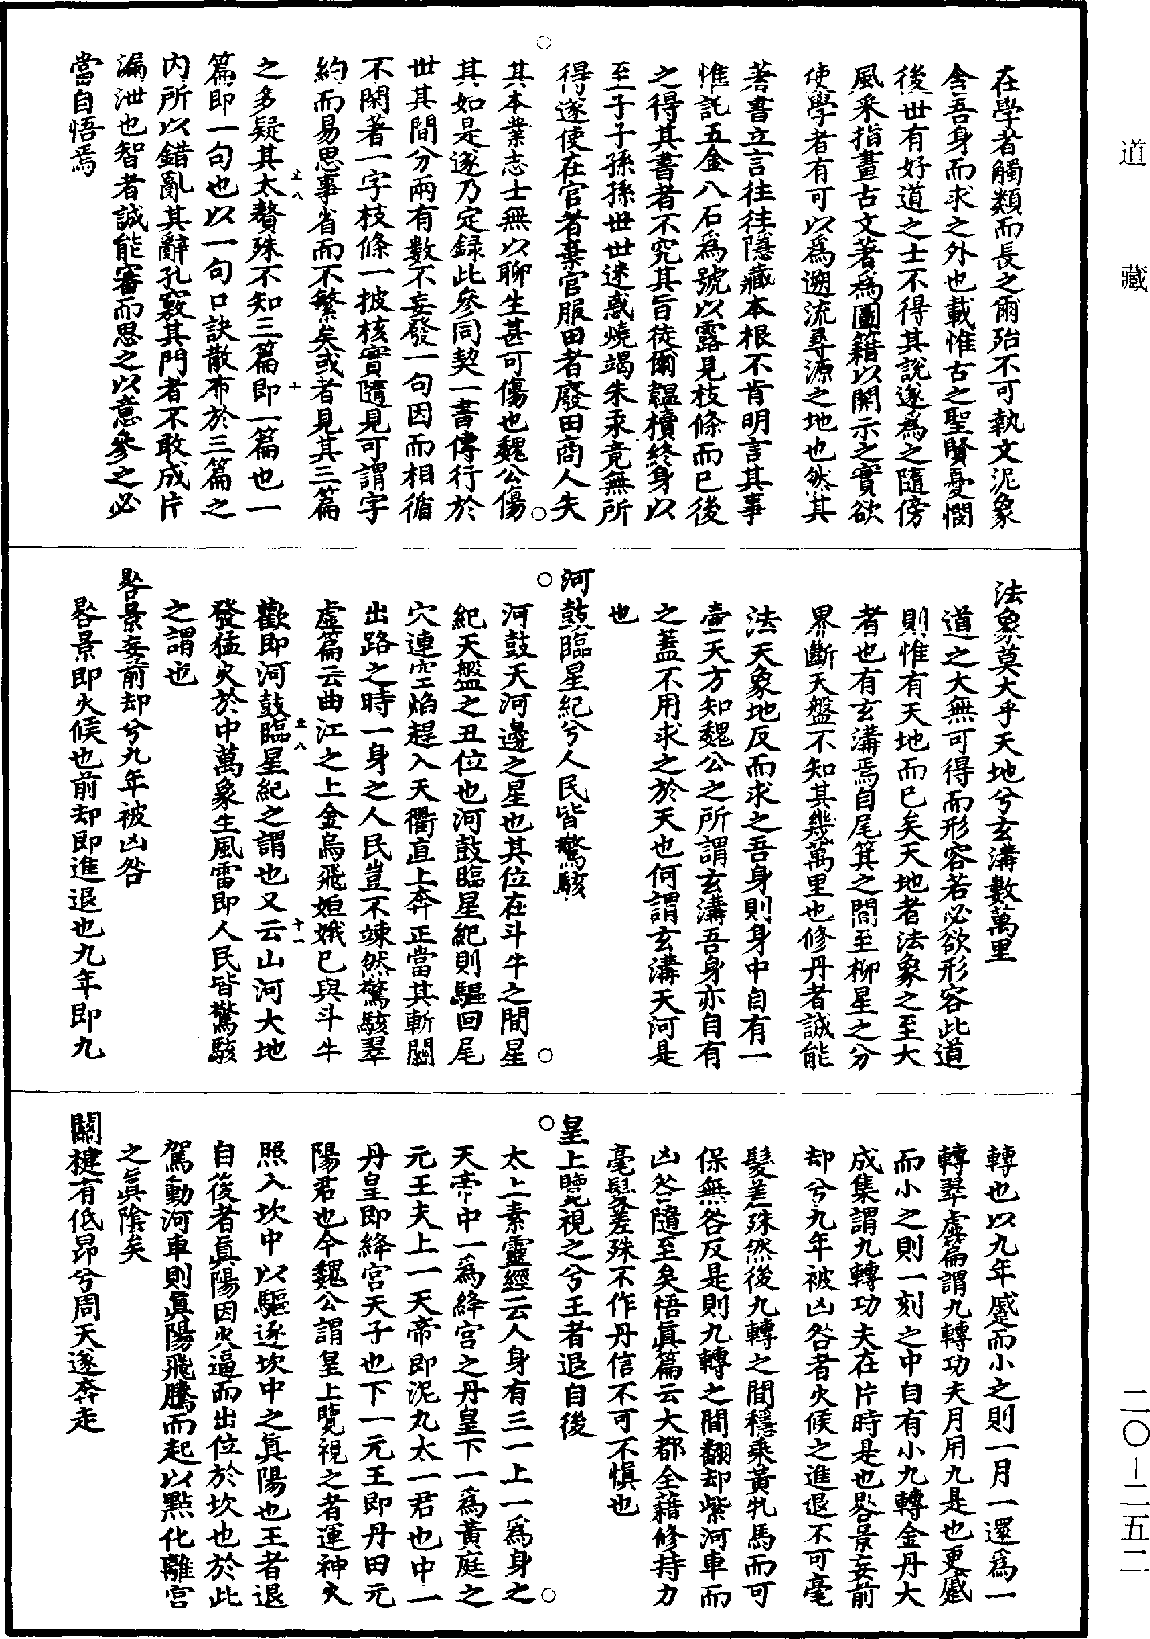 道藏
在學者觸類而長之爾殆不可執文泥象
舍吾身而求之外也載惟古之聖賢憂憫
後世有好道之士不得其說遂為之隨傍
風采指畫古文著為圖籍以開示之實欲
使學者有可以為遡流尋源之地也然其
著書立言往往隱藏本根不肯明言其事
惟託五金八石為號以露見枝條而已後
之得其書者不究其旨徒爾韞櫝終身以
至子子孫孫世世迷惑燒竭朱汞竟無所
得遂使在官者棄官服田者廢田商人失
其本業志士無以聊生甚可傷也魏公傷
其如是遂乃定録此參同契一書傳行於
世其間分兩有數不妄發一句因而相循
不閑著一字枝條一披核實隨見可謂字
約而易思事省而不繁矣或者見其三篇
之多疑其太贅殊不知三篇即一篇也一
篇即一句也以一句口訣散布於三篇之
內所以錯亂其辭孔竅其門者不敢成片
漏泄也智者誠能審而思之以意參之必
當自悟焉
法象莫大乎天地兮玄溝數萬里
道之大無可得而形容若必欲形容此道
則惟有天地而已矣天地者法象之至大
者也有玄溝焉自尾箕之間至柳星之分
界斷天盤不知其幾萬里也修丹者誠能
法天象地反而求之吾身則身中自有一
壺天方知魏公之所謂玄溝吾身亦自有
之蓋不用求之於天也何謂玄溝天河是
也
河鼓臨星紀兮人民皆驚駭
河鼓天河邊之星也其位在斗牛之間星
紀天盤之丑位也河鼓臨星紀則驅回尾
穴連空焰趕入天衢直上奔正當其斬關
出路之時一身之人民豈不竦然驚駭翠
虛篇云曲江之上金烏飛姮娥已與斗牛
歡即河鼓臨星紀之謂也又云山河大地
發猛火於中萬象生風雷即人民皆驚駭
之謂也
晷景妄前却兮九年被凶咎
晷景即火候也前却即進退也九年即九
轉也以九年蹙而小之則一月一還為一
轉翠虛篇謂九轉功夫月用九是也更蹙
而小之則一刻之中自有小九轉金丹大
成集謂九轉功夫在片時是也晷景妄前
却兮九年被凶咎者火候之進退不可毫
髮差殊然後九轉之間穩乘黃牝馬而可
保無咎反是則九轉之間翻却紫河車而
凶咎隨至矣悟真篇云大都全藉修持力
毫髮差殊不作丹信不可不慎也
皇上覽視之兮王者退自後
太上素靈經云人身有三一上一為身之
天帝中一為絳宮之丹皇下一為黃庭之
元王夫上一天帝即泥丸太一君也中一
丹皇即絳宮天子也下一元王即丹田元
陽君也今魏公謂皇上覽視之者運神火
照入坎中以驅逐坎中之真陽也王者退
自後者真陽因火逼而出位於坎也於此
駕動河車則真陽飛騰而起以點化離宮
之真陰矣
關楗有低昂兮周天遂奔走
二〇－二五二